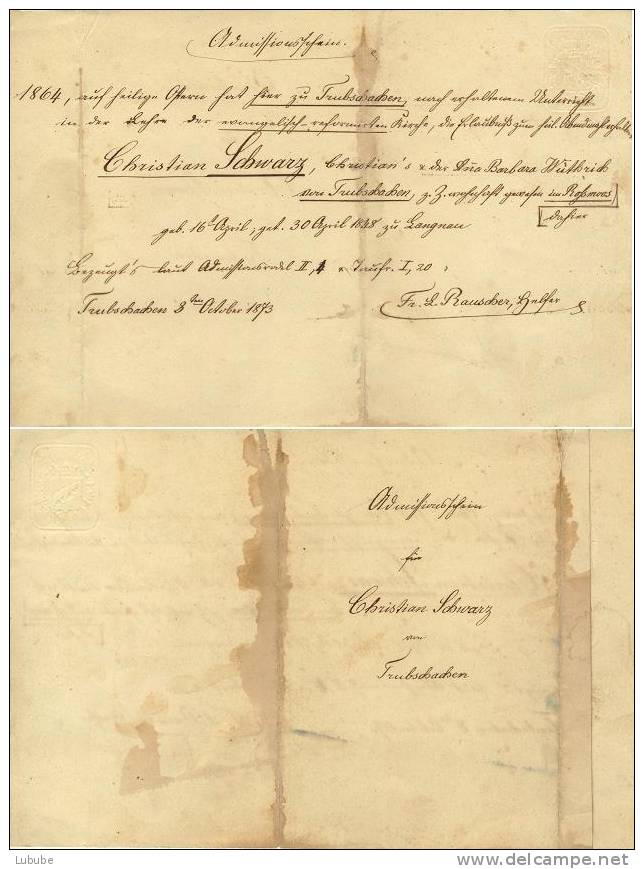 Admissionsschein.
1864, auf heilige Ostern hat hier zu Trubschachen, nach erhaltenem Unterricht
in der Lehre der evangelisch-reformirten Kirche, die Erlaubniß zum heil. Abendmahl erhalten
Christian Schwarz, Christian's u. der Anna Barbara Wüthrich
von Trubschachen, z. Z. wohnhaft gewesen im Roßmoos,
dahier
geb. 16t April, get. 30 April 1848 zu Langnau
Bezeugt's laut Admissionsrodel II, 4 u. Taufr. I, 20,
Trubschachen 8ten October 1873
Fr. L. Rauscher, Helfer
Admissionsschein
für
Christian Schwarz
von
Trubschachen
Lubube
www.delcampe.net